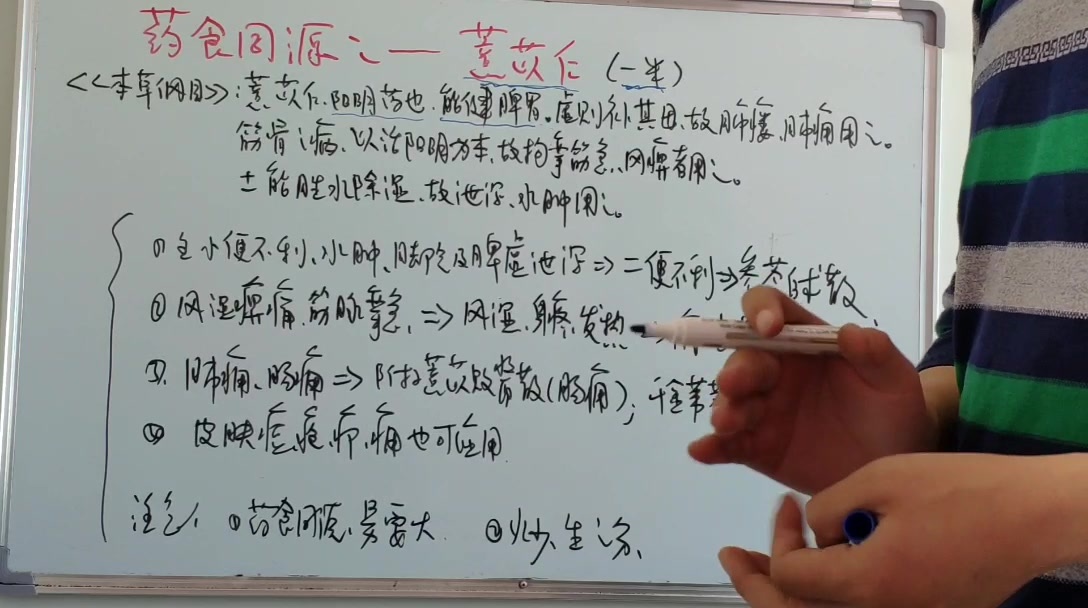 药食同源之一 薏苡仁(一米)
<<本草纲目>>:薏苡仁、阳明药也、能健脾胃。虚则补其母、故肺痿、肺痈用之。
筋骨之病、以治阳明为本、故拘挛筋急、风痹者用之。
土能胜水除湿、故泄泻、水肿用之。
① 主小便不利、水肿、脚气及脾虚泄泻⇒二便不利→参苓白术散、
② 风湿痹痛、筋脉挛急、⇒风湿、身疼、发热
③、肺痈、肠痈⇒附子薏苡败酱散(肠痈);千金苇
④ 皮肤痘、疮、疖、痈也可应用
注意、①药食同源、量要大 ②炒、生之分、